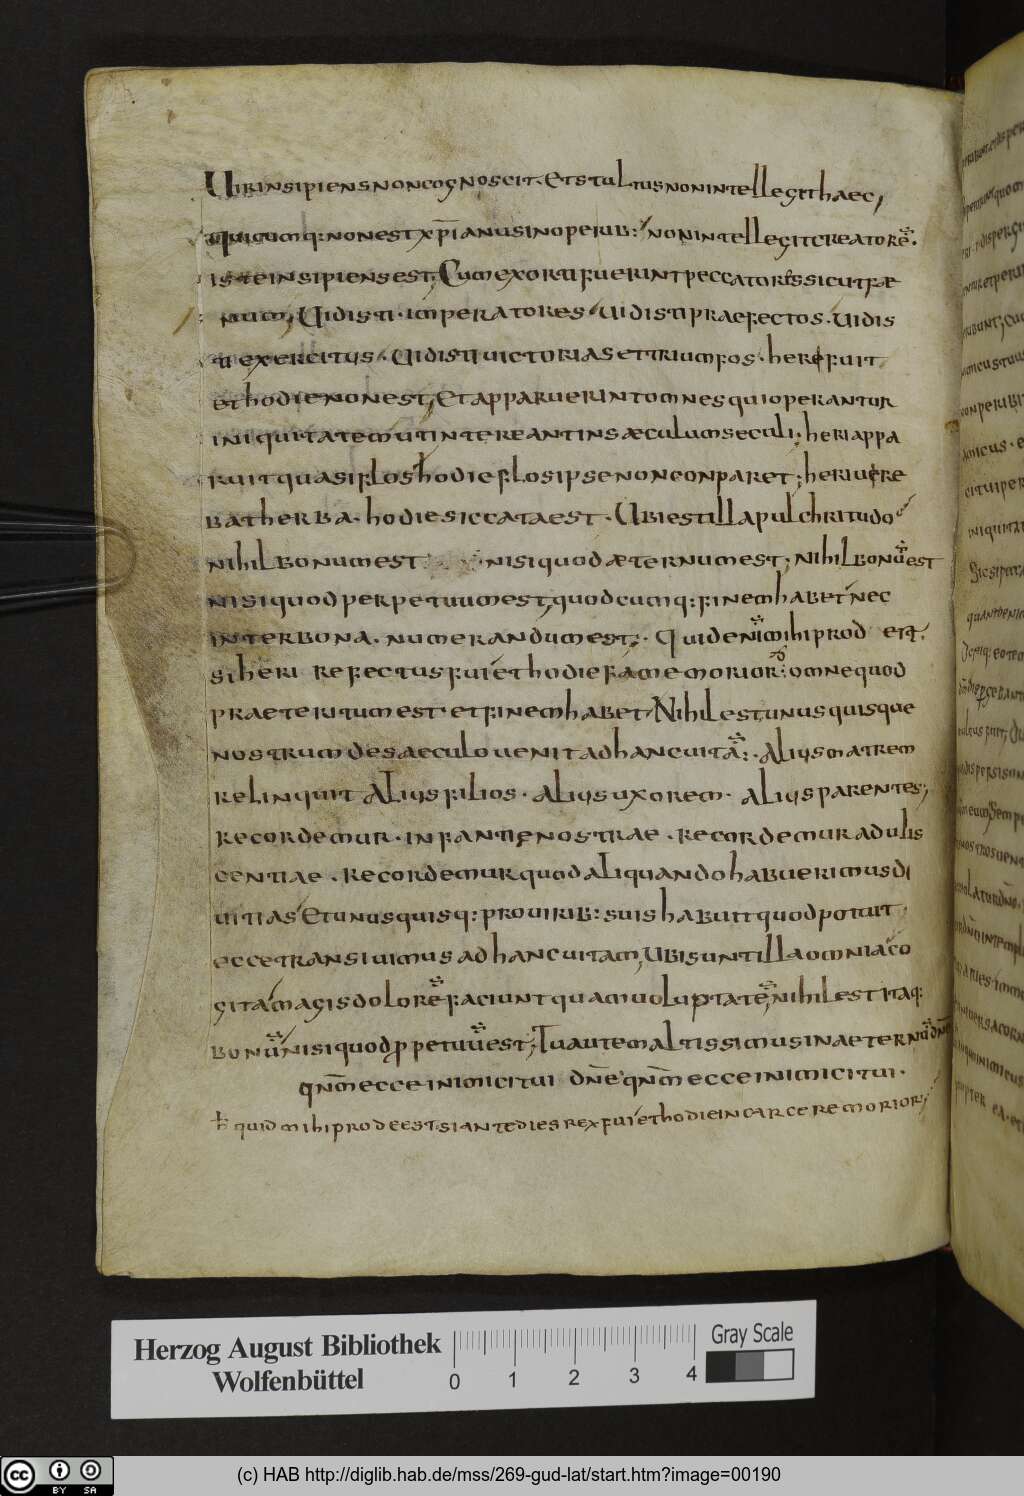 Uirinsipiens non cognoscit. Et stultus non intelleget haec,
Quicumq: non est xp̄ianus in operib: non intellegit creatorē.
iste insipiens est, Cum exorti fuerint peccatores sicut fae
num, Uidisti imperatores uidisti praefectos. Uidis
ti exercitus. Uidisti uictorias et triumfos. heri fuit
et hodie non est, Et apparuerint omnes qui operantur
iniquitatem ut intereant in saeculum seculi. heri appa
ruit quasi flos hodie flos ipse non conparet; heri uere
bat herba. hodie siccata est. Ubi est illa pulchritudo
nihil bonum est nisi quod aeternum est. Nihil bonū est
nisi quod perpetuum est, quodcumq: finem habet nec
inter bona. numerandum est. Quid enī mihi prod est.
si heri refectus fui et hodie fame morior omne quod
praeteritum est. et finem habet Nihil est. unusquisque
nostrum de saeculo uenit ad hanc uitā. Alius matrem
relinquit Alius filios. Alius uxorem. Alius parentes,
Recordemur. infantiae nostrae. Recordemur adulis
centiae. Recordemur quod aliquando habuerimus di
uitias Et unusquisq: pro uirib: suis habuit quod potuit.
ecce transiuimus ad hanc uitam, Ubi sunt illa omnia co
gita magis dolorē faciunt quam uoluptatē, nihil est itaq:
bonū nisi quod p̱petuū est; Tu autem altissimus in aeternū dn̄e
qn̄m ecce inimici tui dn̄e qn̄m ecce inimici tui.
quid mihi prodeest si ante dies rex fui et hodie in carcere morior,
Herzog August Bibliothek
Wolfenbüttel
0 1 2 3 4
Gray Scale
cc BY SA
(c) HAB http://diglib.hab.de/mss/269-gud-lat/start.htm?image=00190